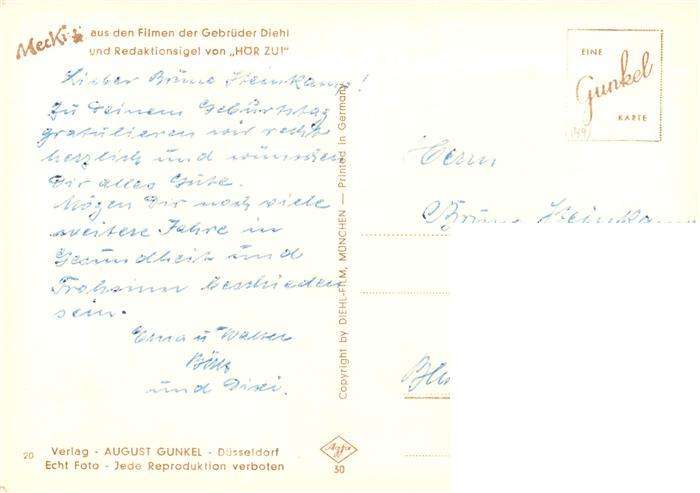 Mecki aus den Filmen der Gebrüder Diehl
und Redaktionsigel von „HÖR ZU!"
Lieber Bruno Steinkamp!
Zu Deinem Geburtstag
gratulieren wir recht
herzlich und wünschen
Dir alles Gute.
Mögen Dir noch viele
weitere Jahre in
Gesundheit und
Frohsinn beschieden
sein.
Erna u Walter
und Dixi.
20
Verlag - AUGUST GUNKEL - Düsseldorf
Echt Foto - Jede Reproduktion verboten
Copyright by DIEHL-FILM, MÜNCHEN — Printed in Germany
Agfa
50
EINE
Gunkel
KARTE
Herrn
Bruno Steinkamp